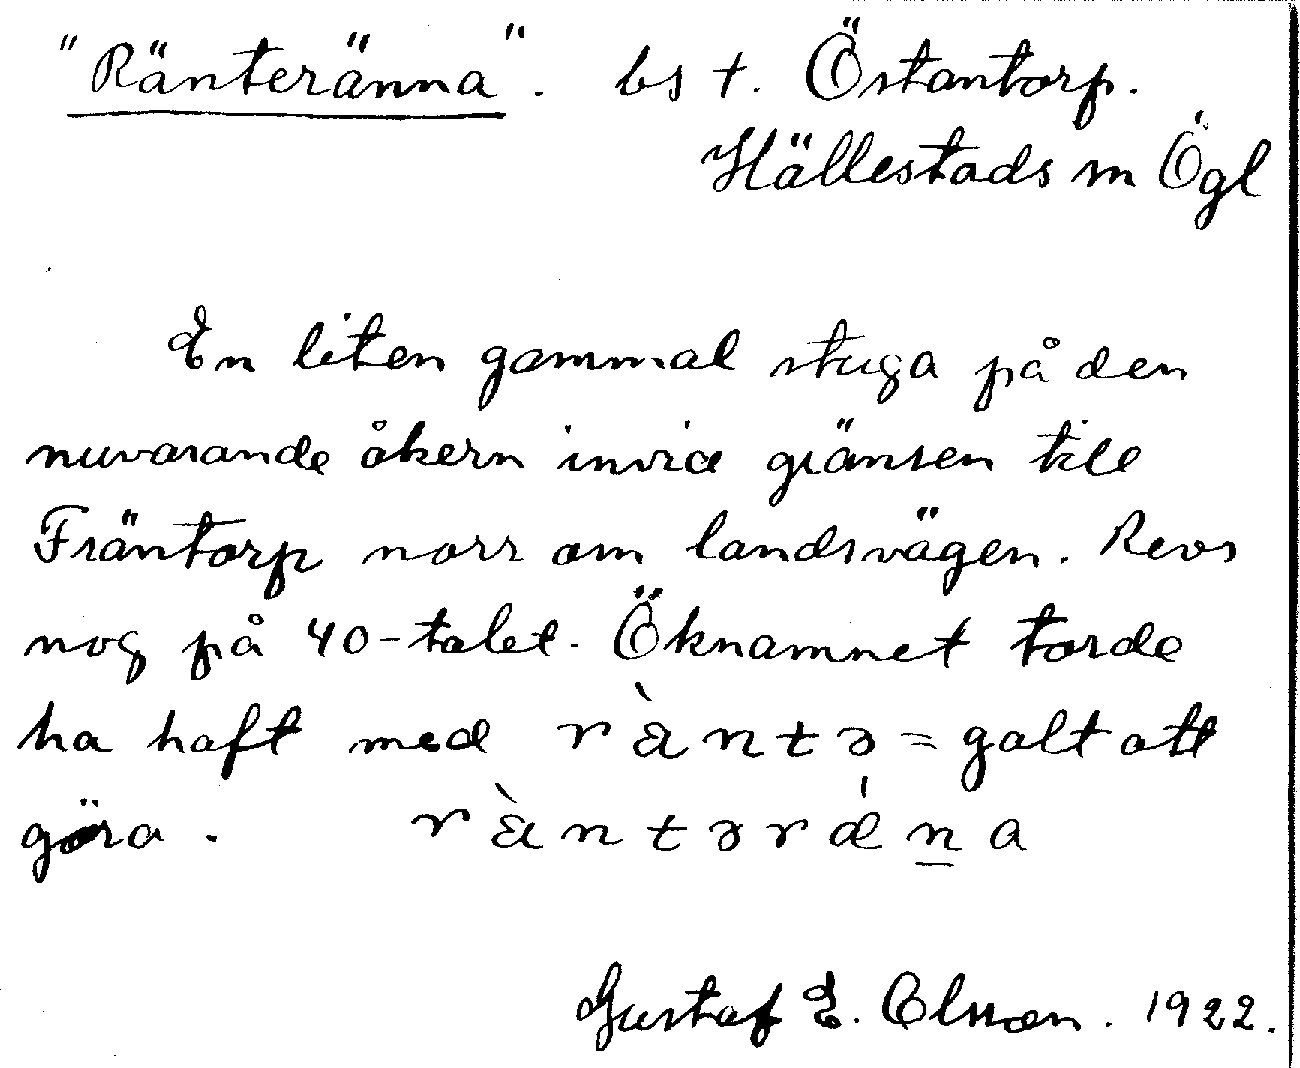 "Ränteränna". bs t. Östantorp.
Hällestads sn Ögl
En liten gammal stuga på den
nuvarande åkern invid gränsen till
Fräntorp norr om landsvägen. Revs
nog på 40-talet. Öknamnet torde
ha haft med ràntə = galt att
göra. ràntəræ̀n̲a
Gustaf E. Olsson. 1922.